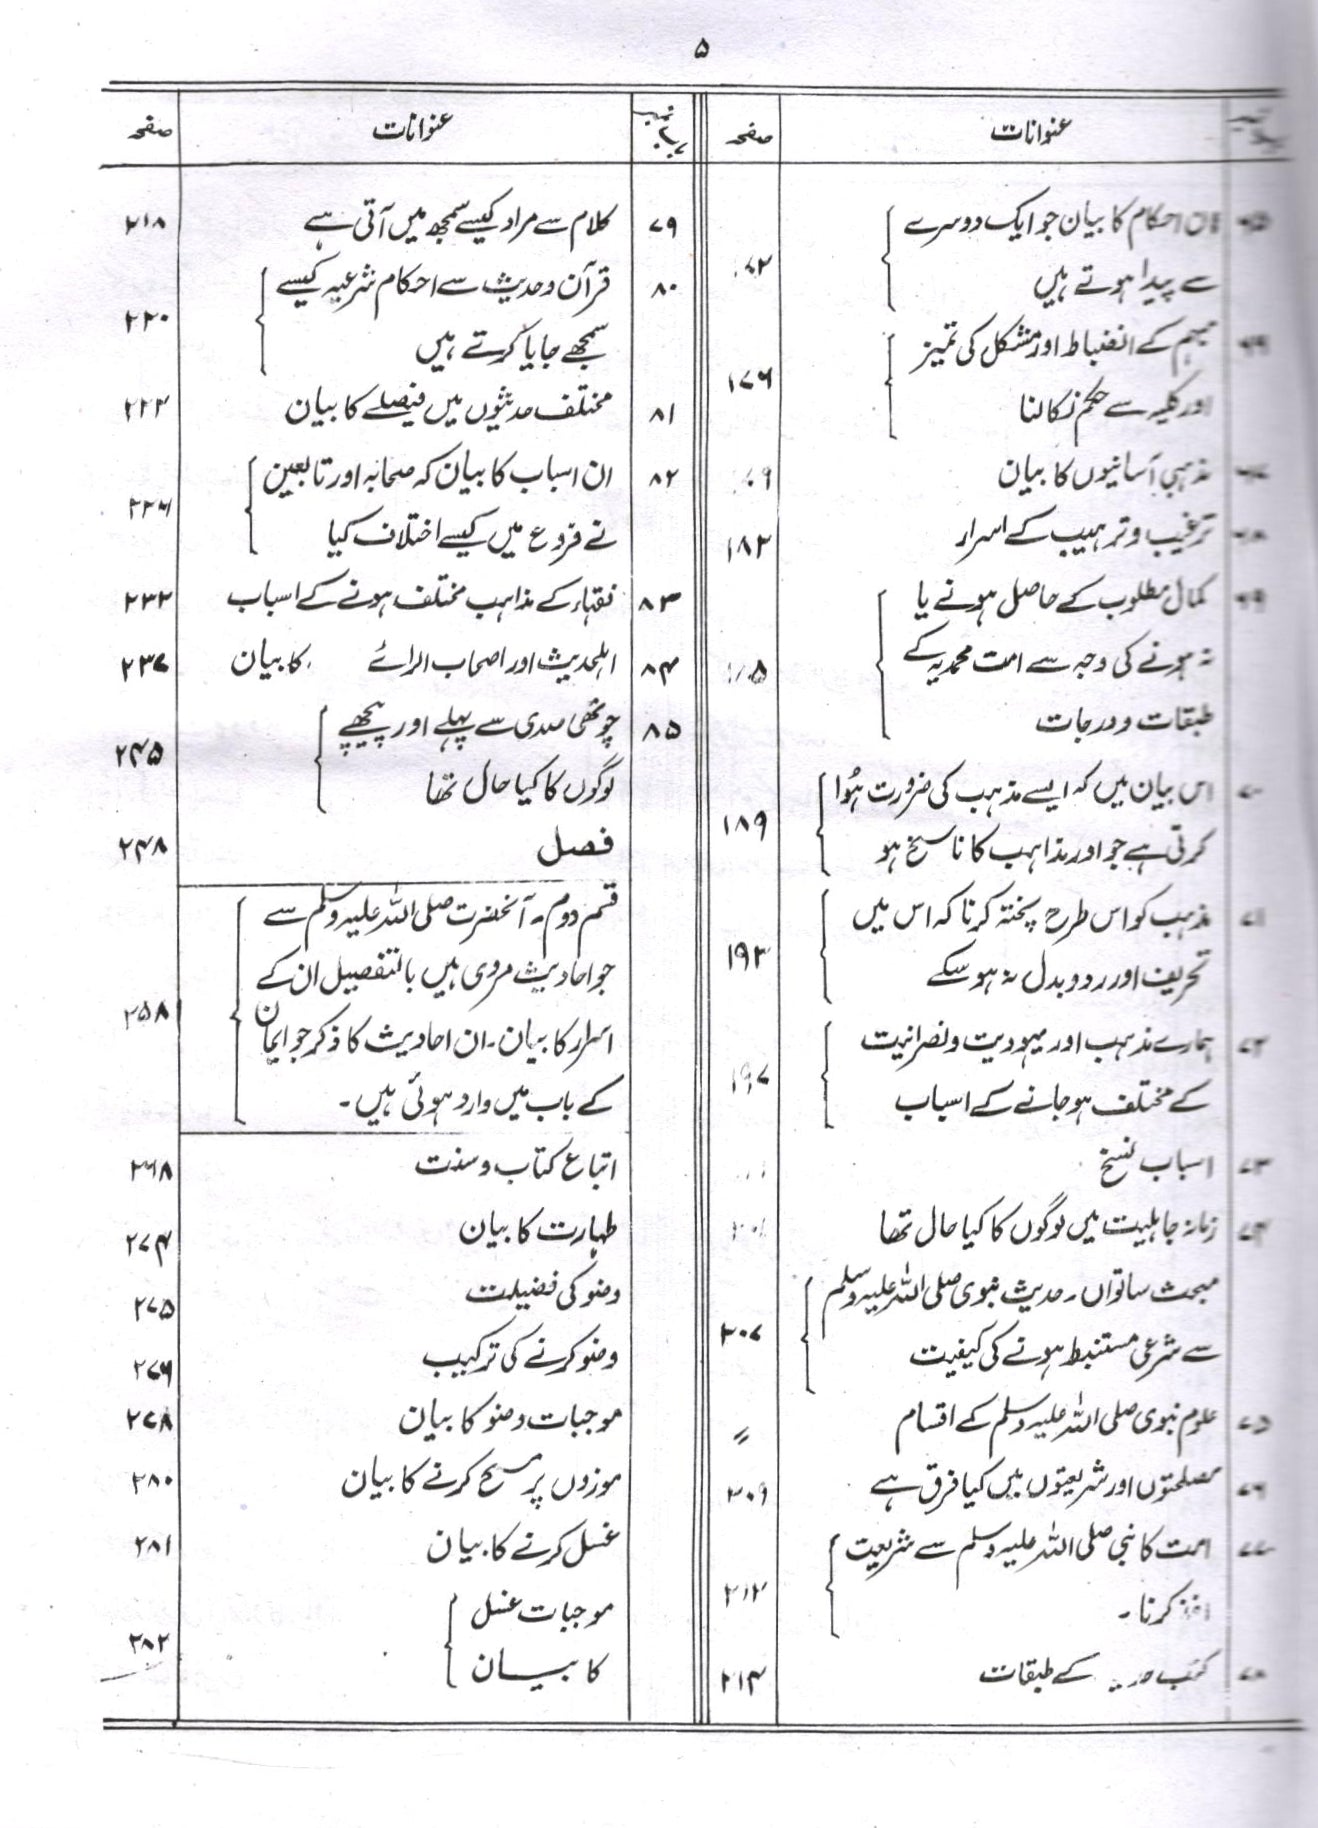 ۵
عنوانات
صفحہ
احکام کا بیان جو ایک دوسرے
سے پیدا ہوتے ہیں
مبہم کے انضباط اور مشکل کی تمیز
اور کلیہ سے حکم نکالنا
۱۷۶
مذہبی آسانیوں کا بیان
ترغیب و ترہیب کے اسرار
۱۸۲
کمال مطلوب کے حاصل ہونے یا
نہ ہونے کی وجہ سے امت محمدیہ کے
طبقات و درجات
۷۰ اس بیان میں کہ ایسے مذہب کی ضرورت ہُوا
کرتی ہے جو اور مذاہب کا ناسخ ہو
۱۸۹
۷۱ مذہب کو اس طرح پختہ کرنا کہ اس میں
تحریف اور ردوبدل نہ ہو سکے
۱۹۳
۷۲ ہمارے مذہب اور یہودیت و نصرانیت
کے مختلف ہو جانے کے اسباب
۱۹۷
۷۳ اسباب نسخ
۷۴ زمانہ جاہلیت میں لوگوں کا کیا حال تھا
مبحث ساتواں۔ حدیث نبوی صلی اللہ علیہ وسلم
سے شرعی مستنبط ہونے کی کیفیت
۲۰۷
۷۵ علوم نبوی صلی اللہ علیہ وسلم کے اقسام
〃
۷۶ مصلحتوں اور شریعتوں میں کیا فرق ہے
۲۰۹
۷۷ امت کا نبی صلی اللہ علیہ وسلم سے شریعت
اخذ کرنا۔
۲۱۲
۷۸ کتب کے طبقات
۲۱۴
نمبر باب
عنوانات
صفحہ
۷۹ کلام سے مراد کیسے سمجھ میں آتی ہے ۲۱۸
۸۰ قرآن و حدیث سے احکام شرعیہ کیسے
سمجھے جایا کرتے ہیں
۲۲۰
۸۱ مختلف حدیثوں میں فیصلے کا بیان ۲۲۲
۸۲ ان اسباب کا بیان کہ صحابہ اور تابعین
نے فروع میں کیسے اختلاف کیا
۲۲۶
۸۳ فقہاء کے مذاہب مختلف ہونے کے اسباب ۲۳۲
۸۴ اہلحدیث اور اصحاب الرائے کا بیان ۲۳۷
۸۵ چوتھی صدی سے پہلے اور پیچھے
لوگوں کا کیا حال تھا
۲۴۵
فصل ۲۴۸
قسم دوم۔ آنحضرت صلی اللہ علیہ وسلم سے
جو احادیث مروی ہیں بالتفصیل ان کے
اسرار کا بیان۔ ان احادیث کا ذکر جو ایمان
کے باب میں وارد ہوئی ہیں۔
۲۵۸
اتباع کتاب و سنت ۲۶۸
طہارت کا بیان ۲۷۴
وضو کی فضیلت ۲۷۵
وضو کرنے کی ترکیب ۲۷۶
موجبات وضو کا بیان ۲۷۸
موزوں پر مسح کرنے کا بیان ۲۸۰
غسل کرنے کا بیان ۲۸۱
موجبات غسل
کا بیان
۲۸۲